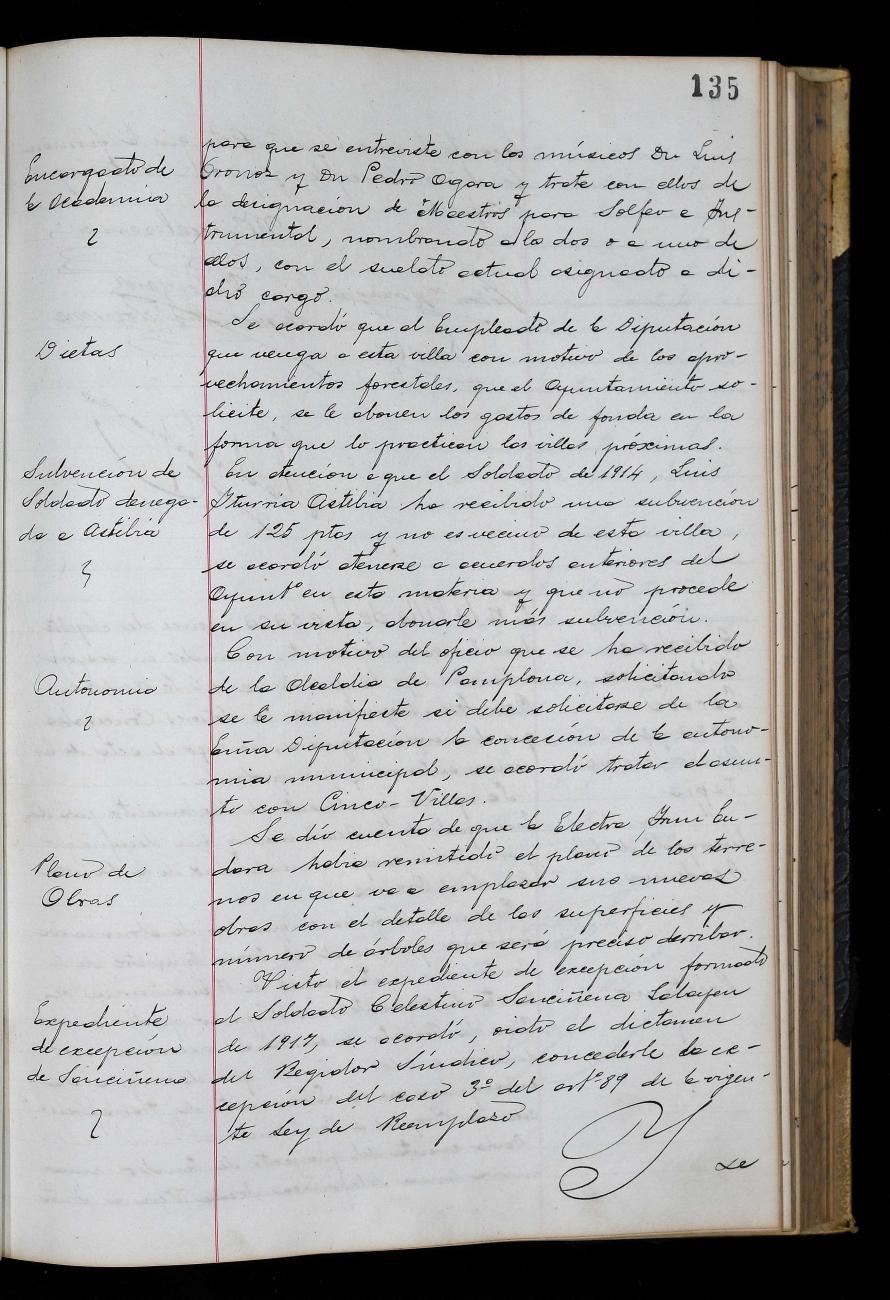 135
Encargado de
la Academia
para que se entreviste con los músicos Dn Luis
Oronoz y Dn Pedro Ogara y trate con ellos de
la designación de Maestros para Solfeo e Ins-
trumental, nombrando a los dos o a uno de
ellos, con el sueldo actual asignado a di-
cho cargo.
Dietas
Se acordó que al Empleado de la Diputación
que venga a esta villa con motivo de los apro-
vechamientos forestales, que el Ayuntamiento so-
licite, se le abonen los gastos de fonda en la
forma que lo practican las villas próximas.
Subvención de
Soldado denega-
da a Astibia
En atención a que el Soldado de 1914, Luis
Iturria Astibia ha recibido una subvención
de 125 ptas y no es vecino de esta villa,
se acordó atenerse a acuerdos anteriores del
Ayuntº en esta materia y que no procede
en su vista, abonarle más subvención.
Autonomia
Con motivo del oficio que se ha recibido
de la Alcaldia de Pamplona, solicitando
se le manifieste si debe solicitarse de la
Exma Diputación la concesión de la autono-
mia municipal, se acordó tratar el asun-
to con Cinco-Villas.
Plano de
Obras
Se dió cuenta de que la Electra, Irun En-
dara habia remitido el plano de los terre-
nos en que va a emplazar sus nuevas
obras con el detalle de las superficies y
número de árboles que será preciso derribar.
Expediente
de excepción
de Sanciñena
Visto el expediente de excepción formado
al Soldado Celestino Sanciñena Lalayen
de 1917, se acordó, oido el dictamen
del Regidor Síndico, concederle la ex-
cepción del caso 3º del artº 89 de la vigen-
te Ley de Reemplazo
Y
se